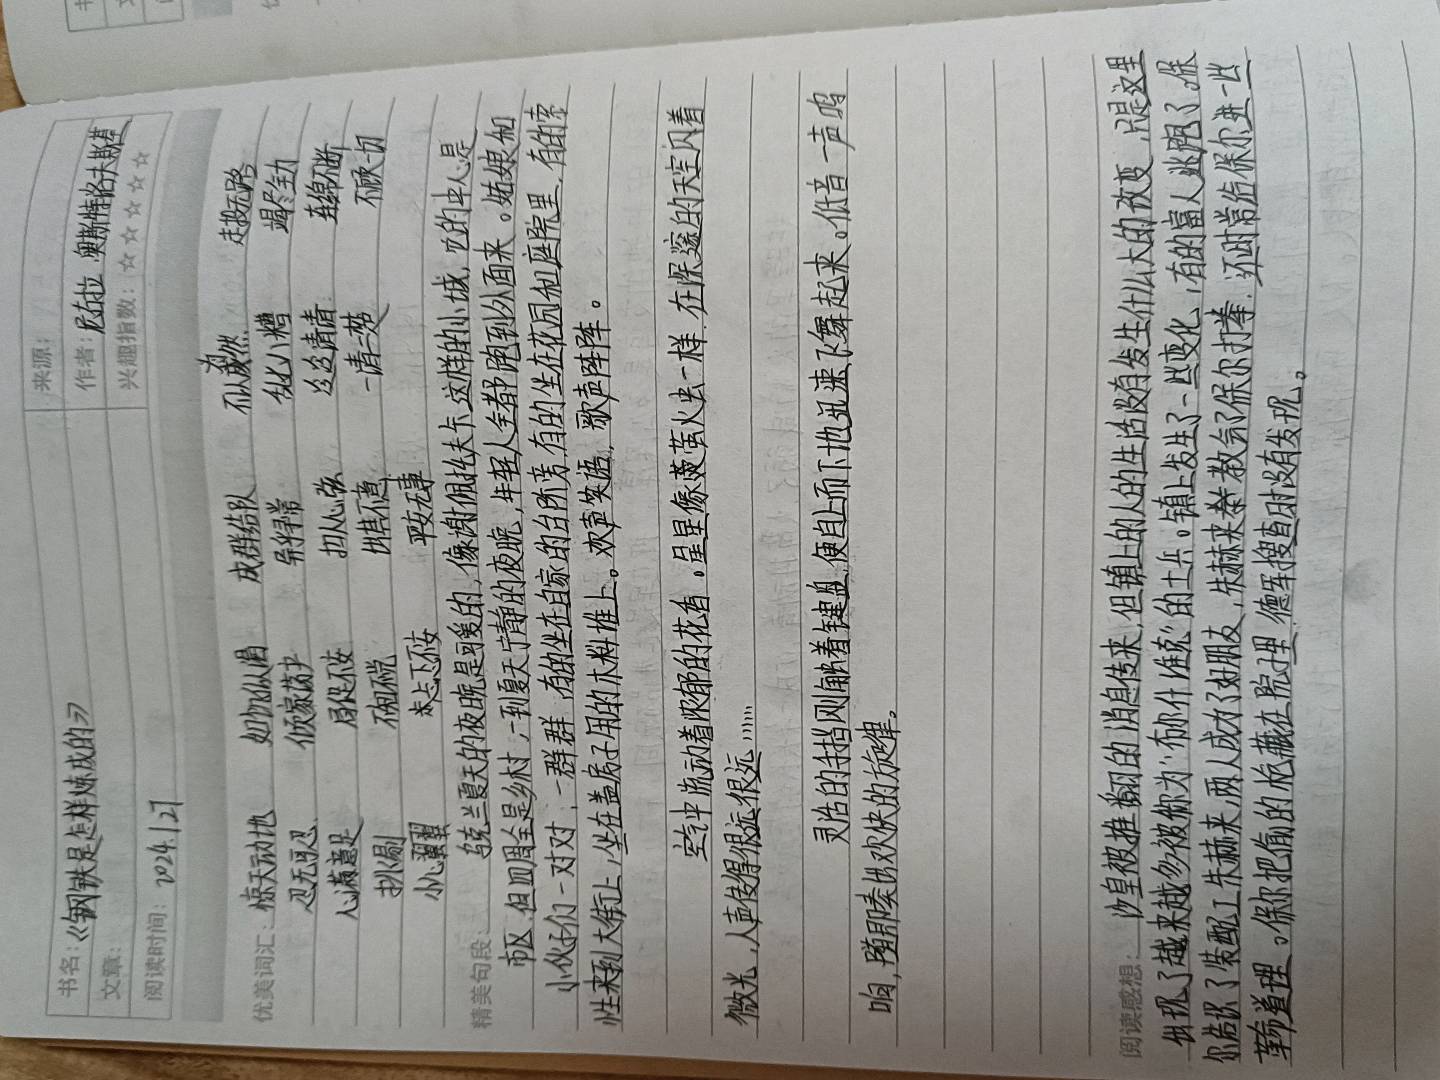 书名：《钢铁是怎样炼成的》
来源：
文章：
作者：尼古拉 奥斯特洛夫斯基
阅读时间：2024.1.21
兴趣指数：☆ ☆ ☆ ☆ ☆
优美词汇：惊天动地 如饥似渴 成群结队 不以为然 走投无路
忍无可忍 倾家荡产 异乎寻常 乱七八糟 竭尽全力
心满意足 局促不安 扣人心弦 幺幺清清 连绵不断
挑剔 不知不觉 出其不意 一清二楚 不顾一切
小心翼翼 忐忑不安 平安无事
精美句段：乌克兰夏天的夜晚是可爱的，像谢佩托夫卡这样的小城，它的中心是
市区，但四周全是乡村；一到夏天宁静的夜晚，年轻人全都跑到外面来。姑娘和
小伙子们一对对，一群群，有的坐在自家的台阶旁，有的坐在花园和庭院里，有的索
性来到大街上，坐在盖房子用的木料堆上。欢声笑语，歌声阵阵。
空气中流动着浓郁的花香。星星像萤火虫一样，在深邃的天空闪着
微光，人声传得很远很远……
灵活的手指刚触着键盘，便自上而下地迅速飞舞起来。低音一声鸣
响，随即奏出欢快的旋律。
阅读感想：沙皇被推翻的消息传来，但镇上的人的生活没有发生什么大的改变，只是这里
出现了越来越多被称为“布尔什维克”的士兵。镇上发生了一些变化，有的富人逃跑了。保
尔结识了装配工朱赫来，两人成为了好朋友，朱赫来拳教会了保尔打拳，还时常给保尔讲一些
革命道理。保尔把偷的枪藏在院子里，德军搜查时没有发现。